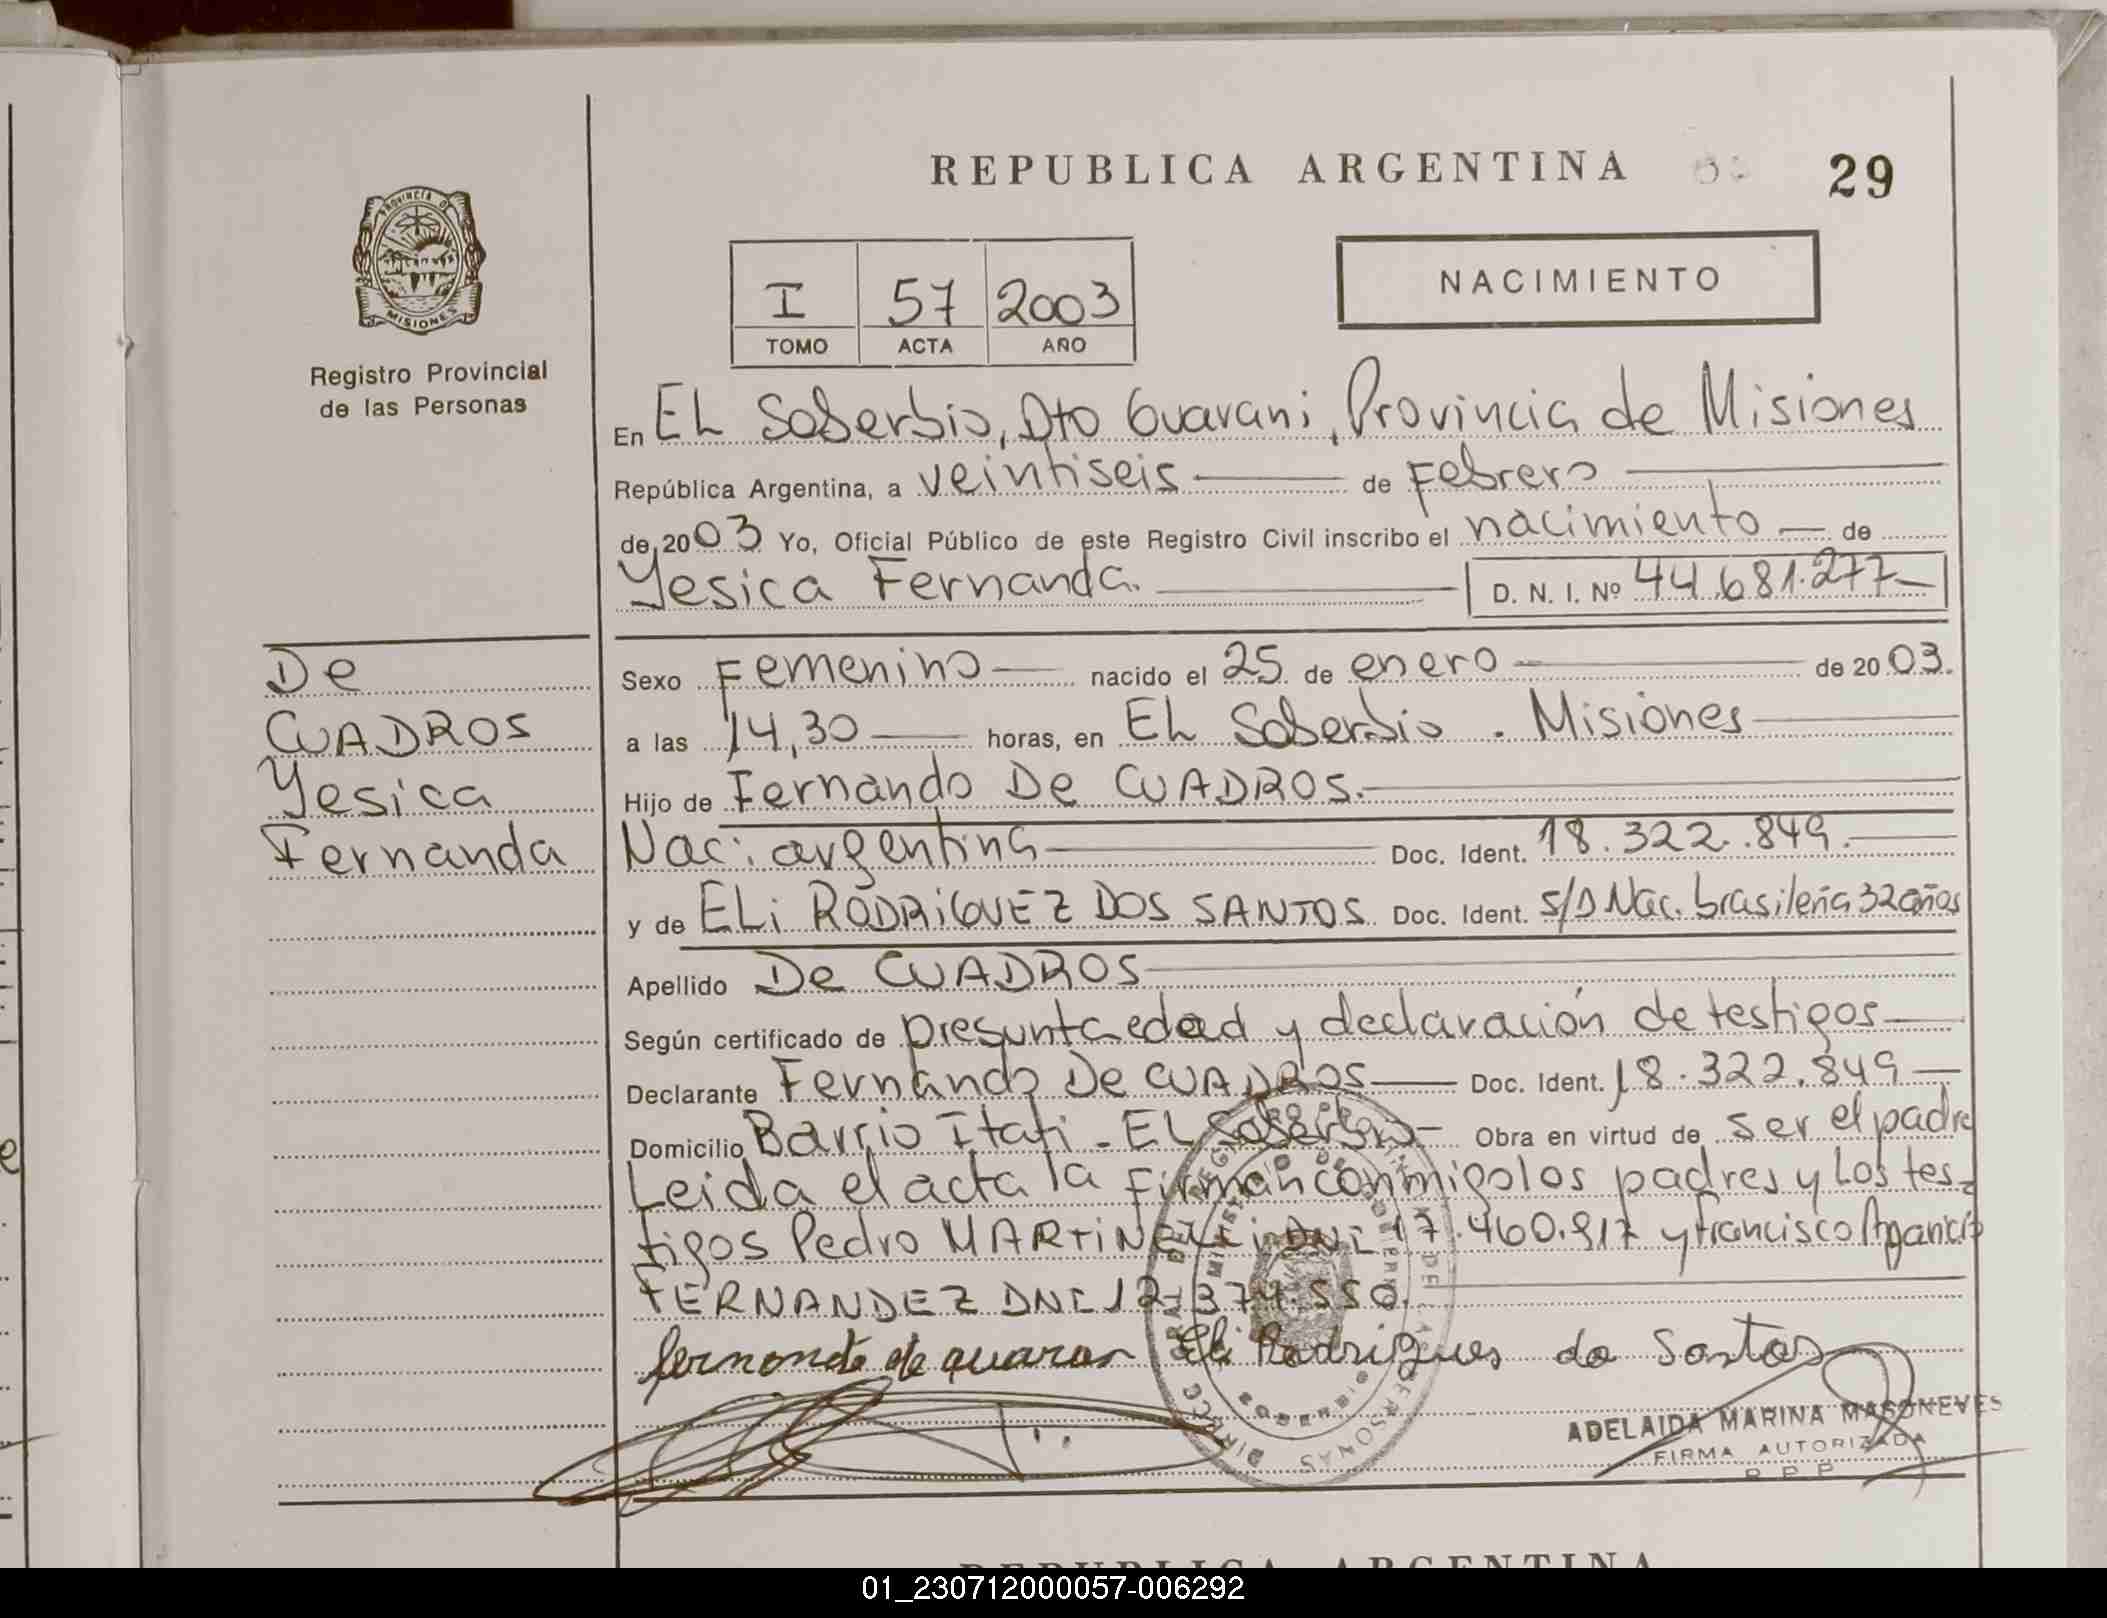 REPUBLICA ARGENTINA
29
PROVINCIA DE
MISIONES
Registro Provincial
de las Personas
I 57 2003
TOMO ACTA AÑO
NACIMIENTO
En EL Soberbio, Dto Guarani, Provincia de Misiones
República Argentina, a veintiseis de Febrero
de 2003 Yo, Oficial Público de este Registro Civil inscribo el nacimiento de
Yesica Fernanda. D. N. I. Nº 44.681.277
De
CUADROS
Yesica
Fernanda
Sexo Femenino nacido el 25 de enero de 2003.
a las 14,30 horas, en EL Soberbio. Misiones
Hijo de Fernando De CUADROS.
Nac: argentina Doc. Ident. 18.322.849.
y de ELi RODRiGUEZ DOS SANTOS Doc. Ident. S/D Nac. brasileña 32 años
Apellido De CUADROS
Según certificado de presunta edad y declaración de testigos
Declarante Fernando De CUADROS Doc. Ident. 18.322.849
Domicilio Barrio Itati - EL Soberbio Obra en virtud de ser el padre
Leida el acta la Firman conmigo los padres y Los tes-
tigos Pedro DNI 17.460.917 y Francisco
FERNANDEZ DNI 12.374.550.
Eli Rodrigues do Santos
ADELAIDA MARINA MASONEVES
FIRMA AUTORIZADA
R P P
REPUBLICA ARGENTINA
01_230712000057-006292